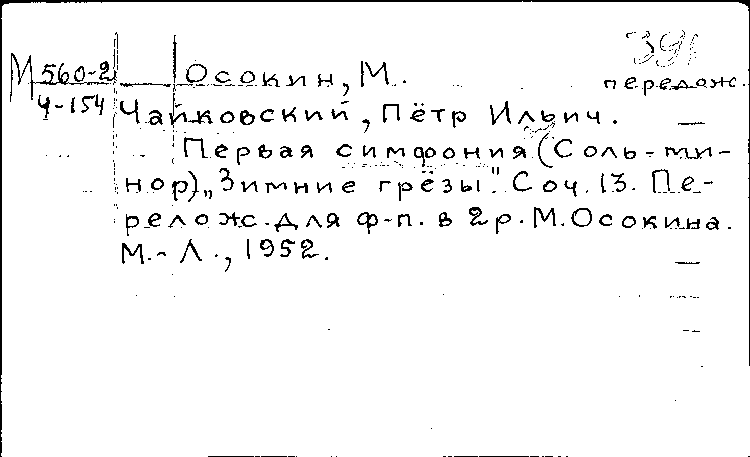 Осокин, М.
перелож.
М 560-2
Ч-154
Чайковский, Пётр Ильич. —
Первая симфония (Соль-ми-
нор) „Зимние грёзы". Соч. 13. Пе-
релож. для ф-п. в 2 р. М. Осокина.
М.-Л., 1952.